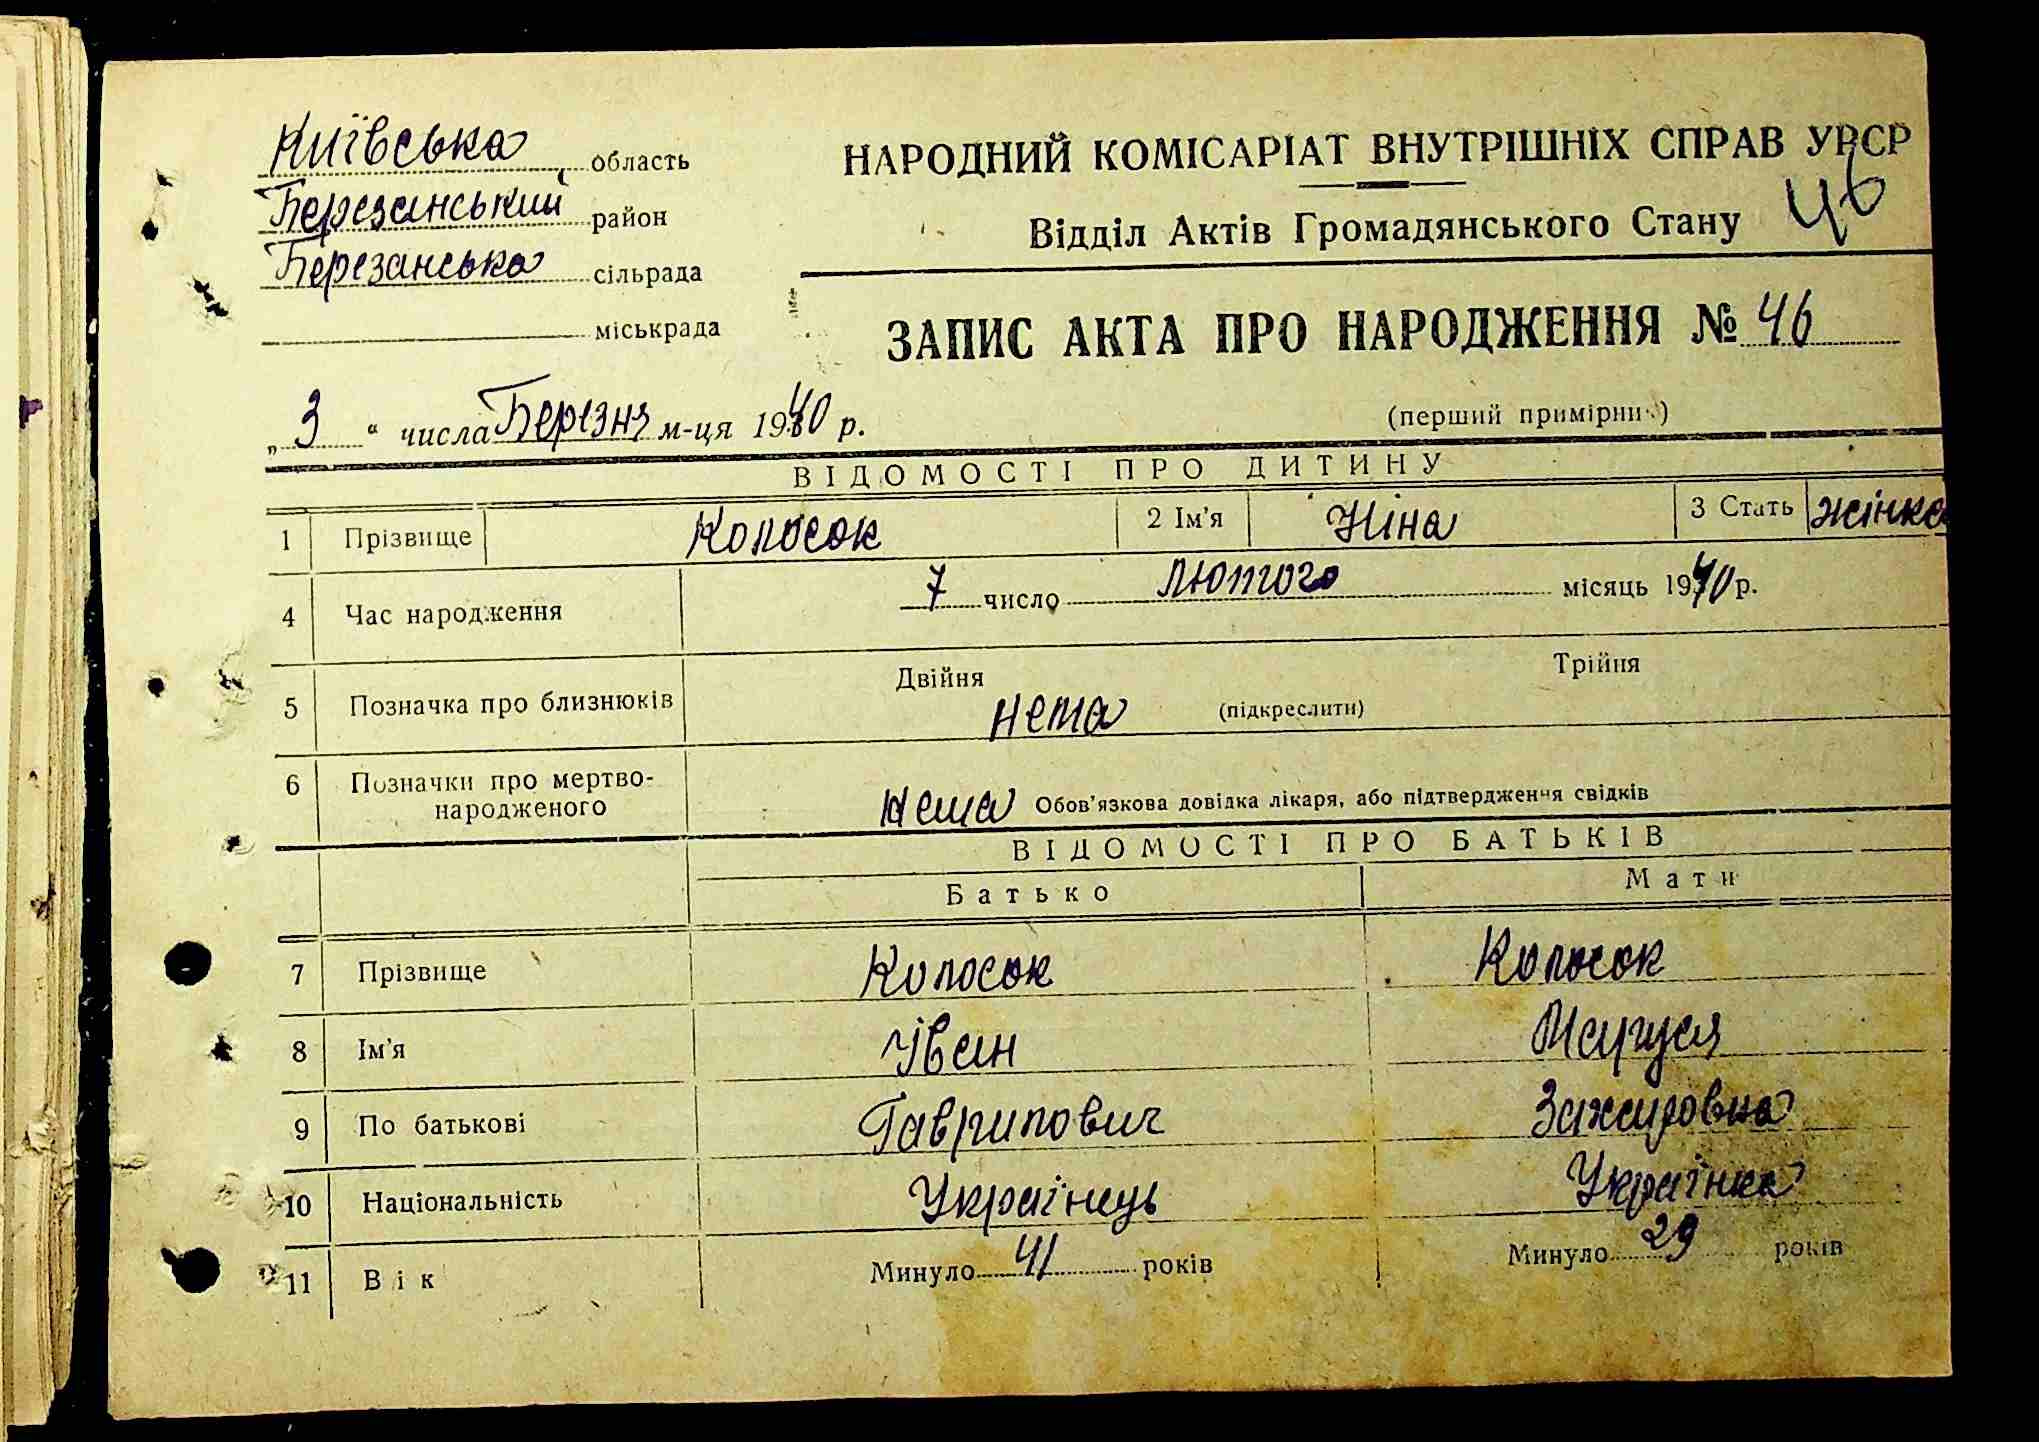 Київська область
Березанський район
Березанська сільрада
міськрада
НАРОДНИЙ КОМІСАРІАТ ВНУТРІШНІХ СПРАВ УРСР
Відділ Актів Громадянського Стану
46
ЗАПИС АКТА ПРО НАРОДЖЕННЯ № 46
„3“ числа Березня м-ця 1940 р.
(перший примірник)
ВІДОМОСТІ ПРО ДИТИНУ
1 Прізвище Колосок 2 Ім'я Ніна 3 Стать жінка
4 Час народження 7 число лютого місяць 1940 р.
5 Позначка про близнюків Двійня нема (підкреслити) Трійня
6 Позначки про мертво-
народженого нема Обов'язкова довідка лікаря, або підтвердження свідків
ВІДОМОСТІ ПРО БАТЬКІВ
Батько Мати
7 Прізвище Колосок Колосок
8 Ім'я Іван Маруся
9 По батькові Гаврилович
10 Національність Українець Українка
11 Вік Минуло 41 років Минуло 29 років